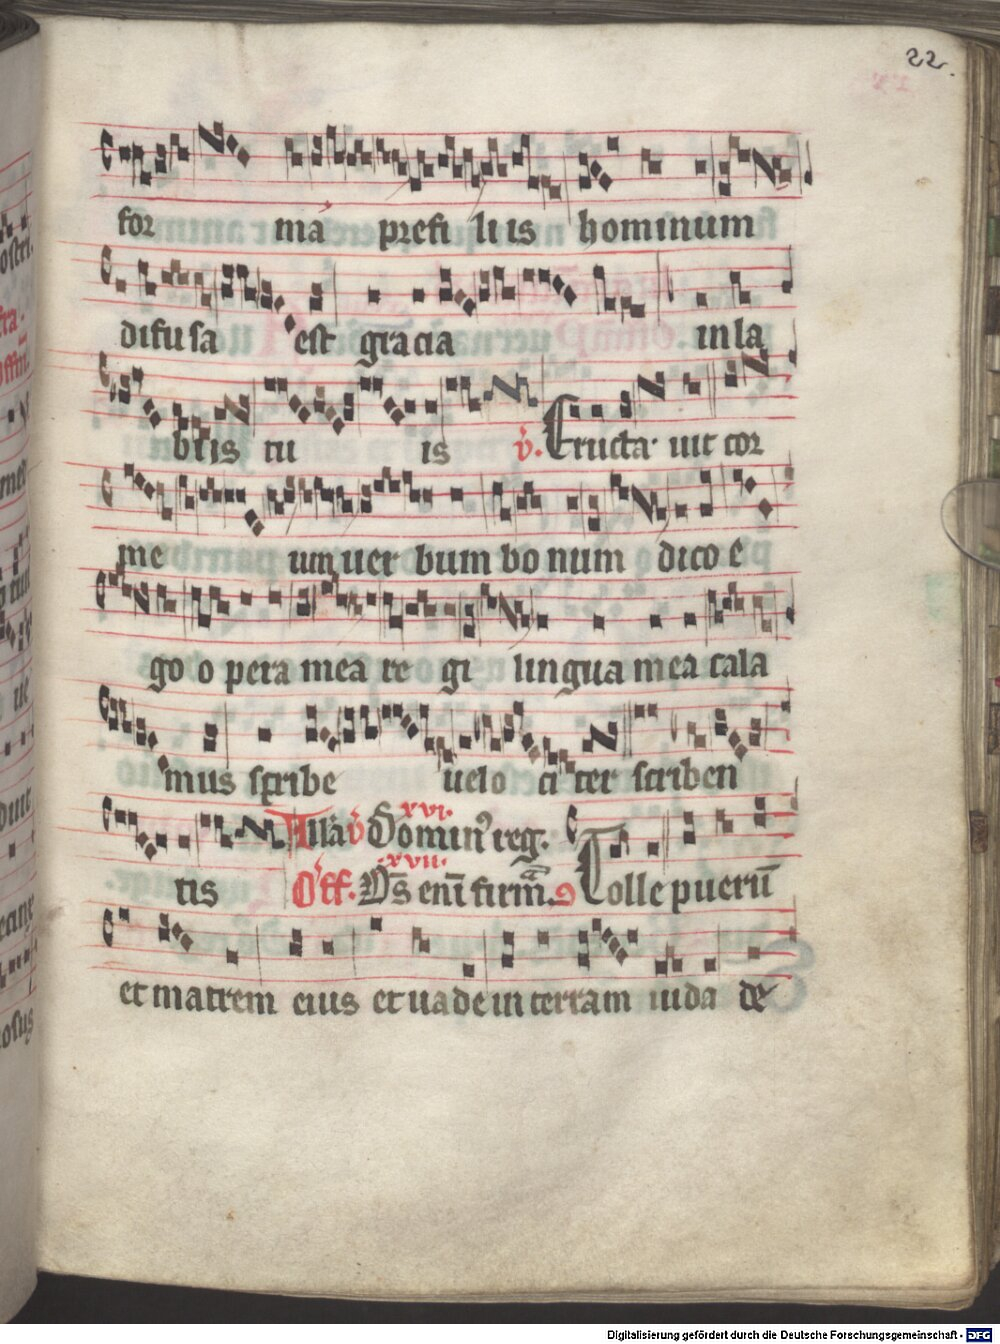 22.
for ma prefi li is hominum
difu sa est gracia in la
biis tu is v. Eructa uit cor
me um uer bum bo num dico e
go o pera mea re gi lingua mea cala
mus scribe uelo ci ter scriben
xvi.
tis All'a v Domin⁹ reg.
.xvii.
Off. Ds̄ enī firm̄. Tolle puerū
et matrem eius et uade in terram iuda de
Digitalisierung gefördert durch die Deutsche Forschungsgemeinschaft - DFG